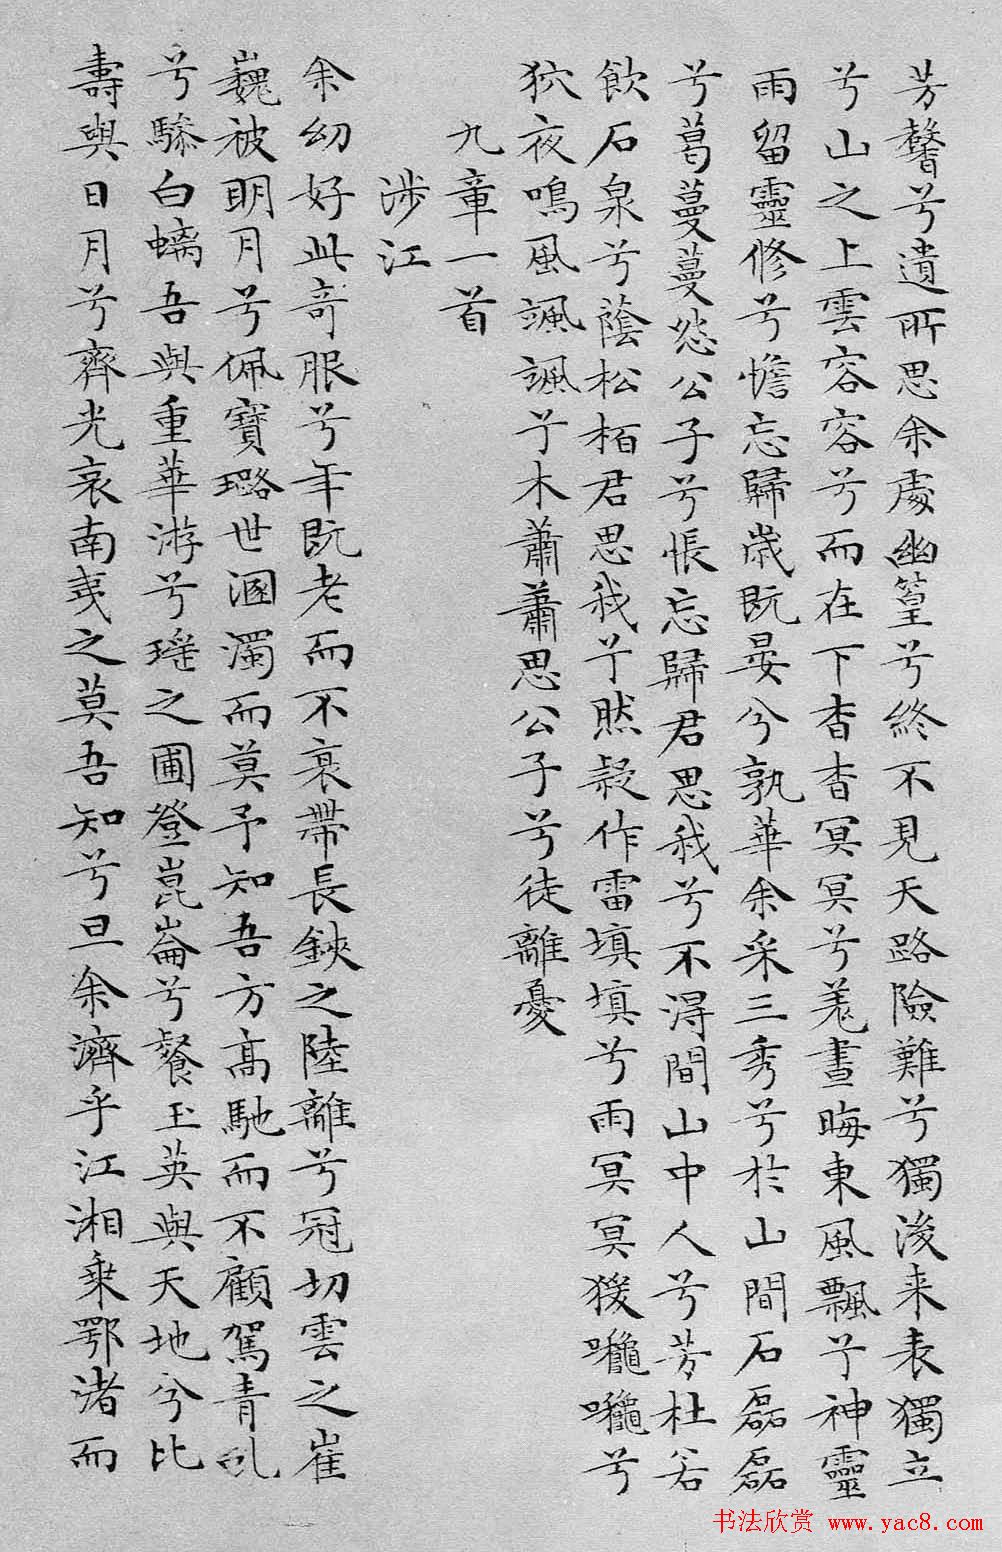 芳馨兮遺所思余處幽篁兮終不見天路險難兮獨後来表獨立
兮山之上雲容容兮而在下杳杳冥冥兮羌晝晦東風飄兮神靈
雨留靈修兮憺忘歸歲既晏兮孰華余采三秀兮於山間石磊磊
兮葛蔓蔓怨公子兮悵忘歸君思我兮不得間山中人兮芳杜若
飲石泉兮蔭松栢君思我兮然疑作雷填填兮雨冥冥猨嚨嚨兮
狖夜鳴風颯颯兮木蕭蕭思公子兮徒離憂
九章一首
涉江
余幼好此奇服兮年既老而不衰帶長鋏之陸離兮冠切雲之崔
巍被明月兮佩寶璐世溷濁而莫予知吾方高馳而不顧駕青虬
兮驂白螭吾與重華游兮瑤之圃登崑崙兮餐玉英與天地兮比
壽與日月兮齊光哀南夷之莫吾知兮旦余濟乎江湘乘鄂渚而
书法欣赏 www.yac8.com